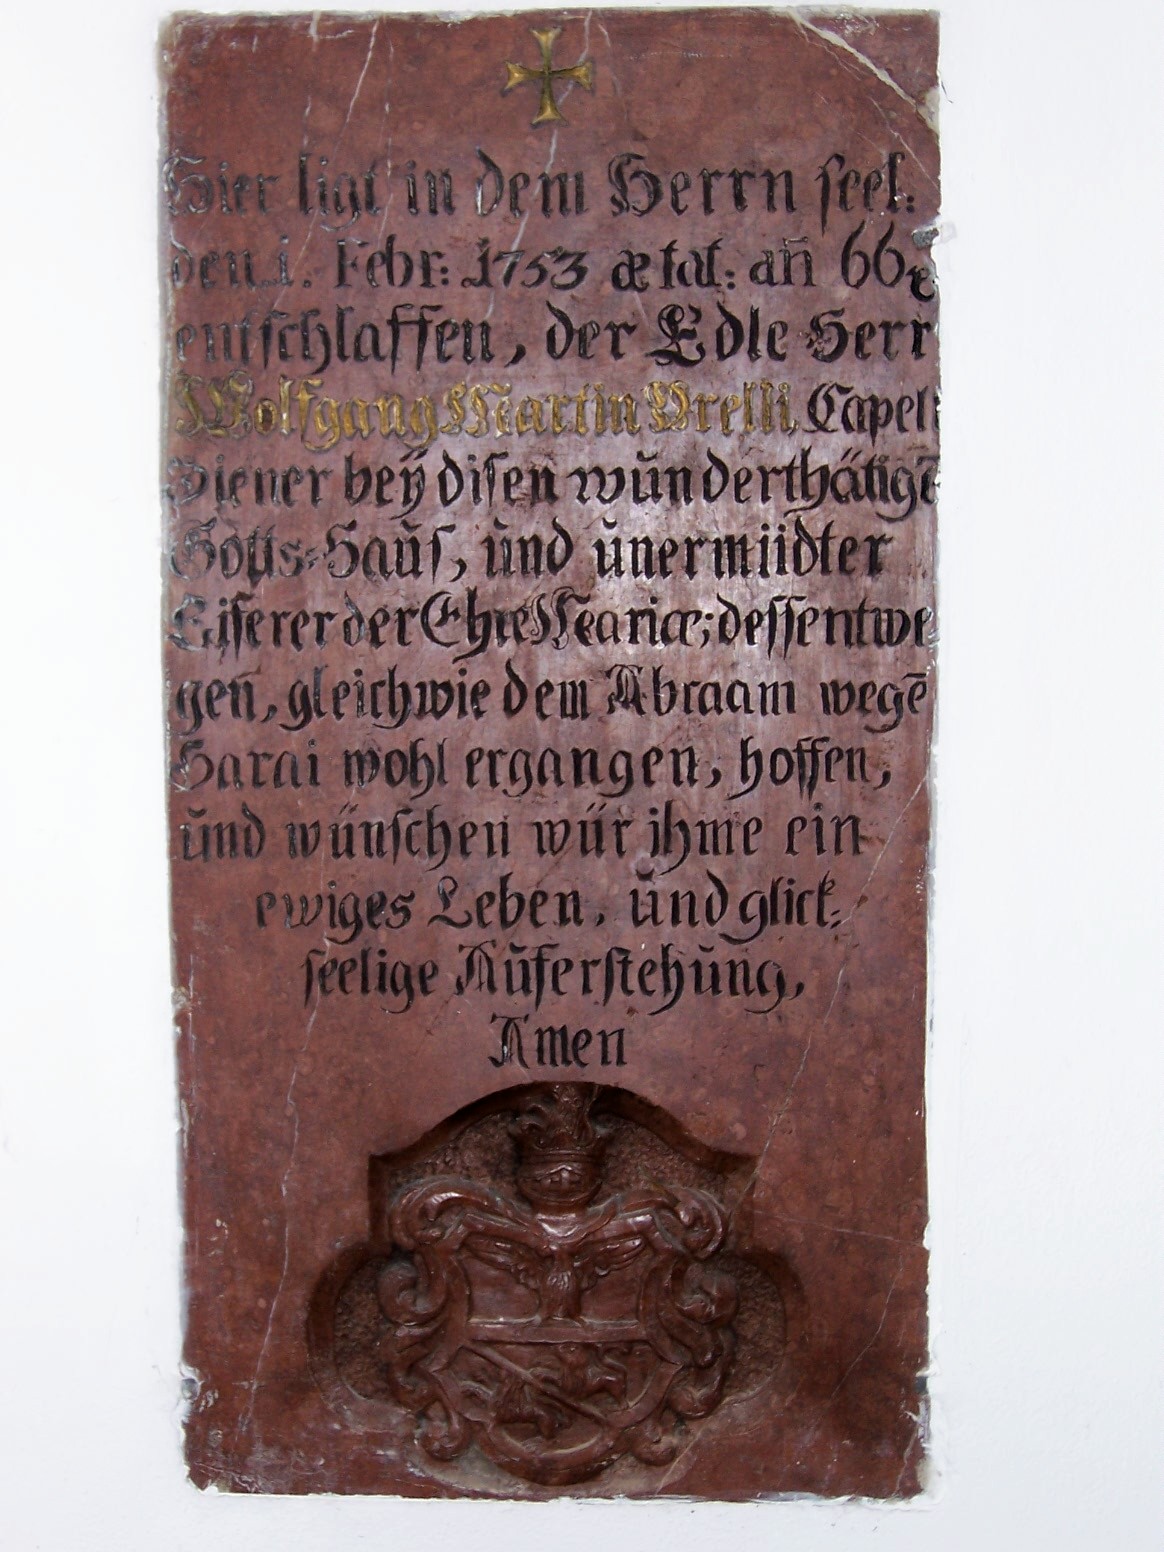 Hier ligt in dem Herrn seel:
den 1. Febr: 1753 ætat: añ 66
entschlaffen, der Edle Herr
Wolfgang Martin Vrelli Capell
Diener beÿ disen wŭnderthätigē
Gotts-Haŭs, ŭnd ŭnermüdter
Eiferer der Ehre Mariæ; dessentwe
gen, gleichwie dem Abraam wegē
Sarai wohl ergangen, hoffen,
ŭnd wünschen wür ihme ein
ewiges Leben, ŭnd glick:
seelige Aŭferstehŭng,
Amen